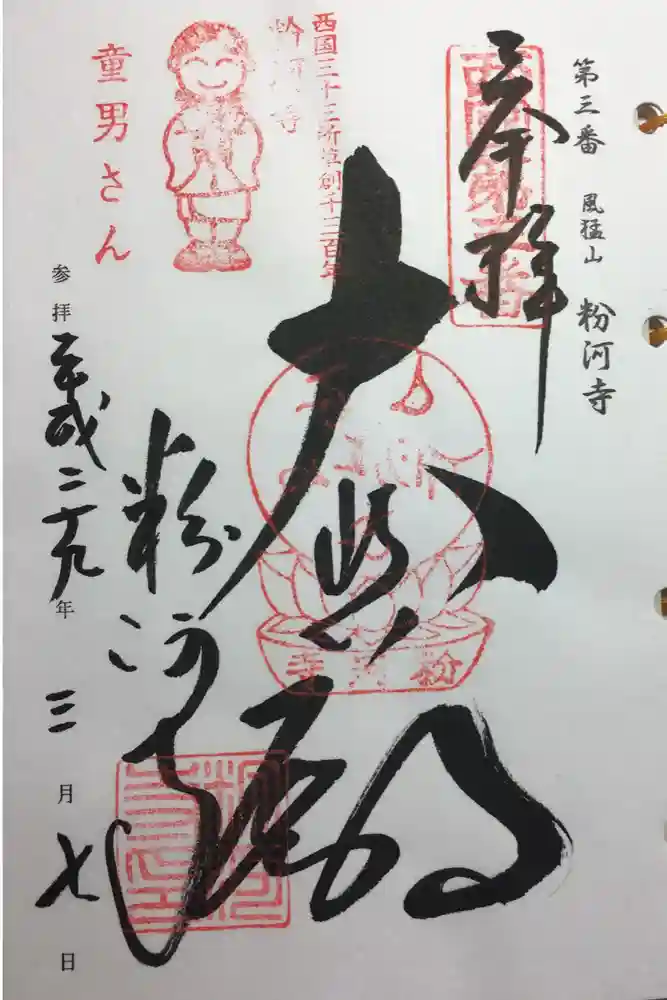 第三番 風猛山 粉河寺
奉拝
西国第三番
大悲殿
粉河寺
西国三十三所草創千三百年
粉河寺
童男さん
粉河寺
参拝 平成二十九年 三月七日